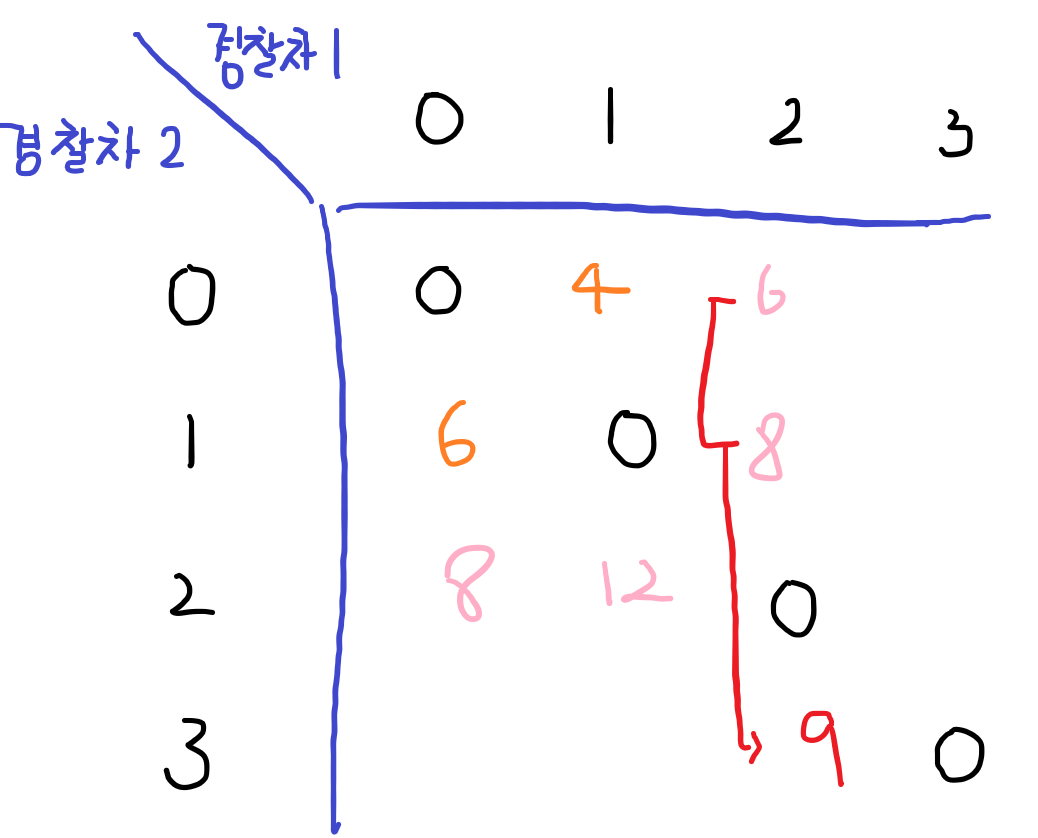 경찰차 1
경찰차 2
0 1 2 3
0 0 4 6
1 6 0 8
2 8 12 0
3 9 0